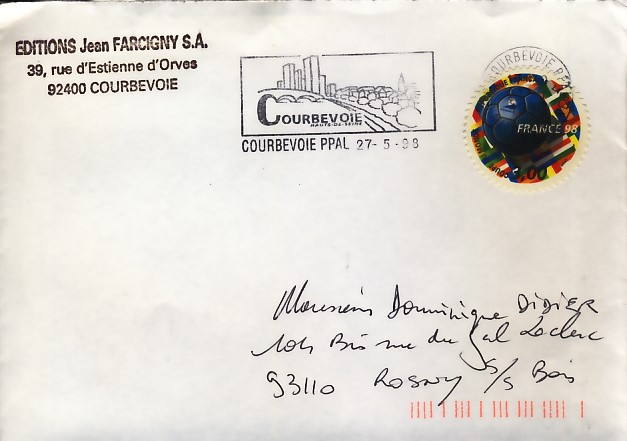 EDITIONS Jean FARCIGNY S.A.
39, rue d'Estienne d'Orves
92400 COURBEVOIE
COURBEVOIE
HAUTS-DE-SEINE
COURBEVOIE PPAL 27-5-98
COURBEVOIE
FRANCE 98
3,00
Monsieur Dominique DIDIER
104 Bis rue du Gal Leclerc
93110 ROSNY S/S Bois